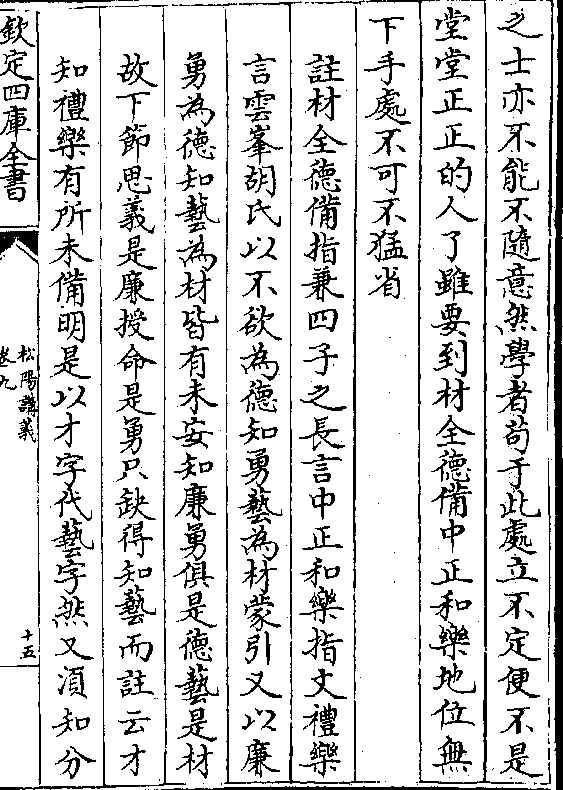 之士亦不能不隨意然學者苟于此處立不定便不是
堂堂正正的人了雖要到材全德備中正和樂地位無
下手處不可不猛省
註材全德備指兼四子之長言中正和樂指文禮樂
言雲峯胡氏以不欲為德知勇藝為材蒙引又以廉
勇為德知藝為材皆有未安知廉勇俱是德藝是材
故下節思義是廉授命是勇只缺得知藝而註云才
知禮樂有所未備明是以才字代藝字然又須知分
欽定四庫全書
松陽講義
卷九
十五